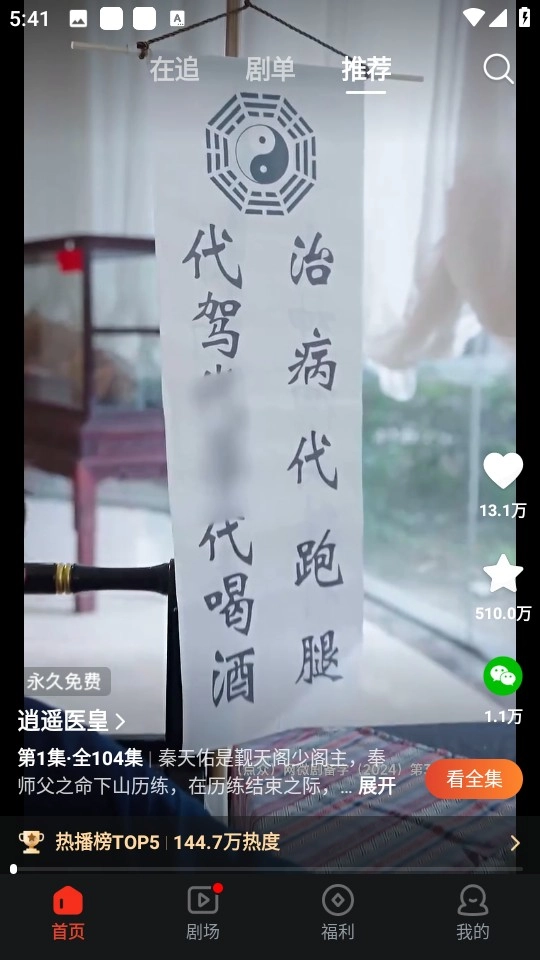 5:41
在追 剧单 推荐
治病代跑腿
代驾
代喝酒
13.1万
510.0万
1.1万
永久免费
逍遥医皇
第1集·全104集 | 秦天佑是觐天阁少阁主，奉
师父之命下山历练，在历练结束之际，... 展开
（点众）网微剧备字（2024）第
看全集
热播榜TOP5 | 144.7万热度
首页 剧场 福利 我的